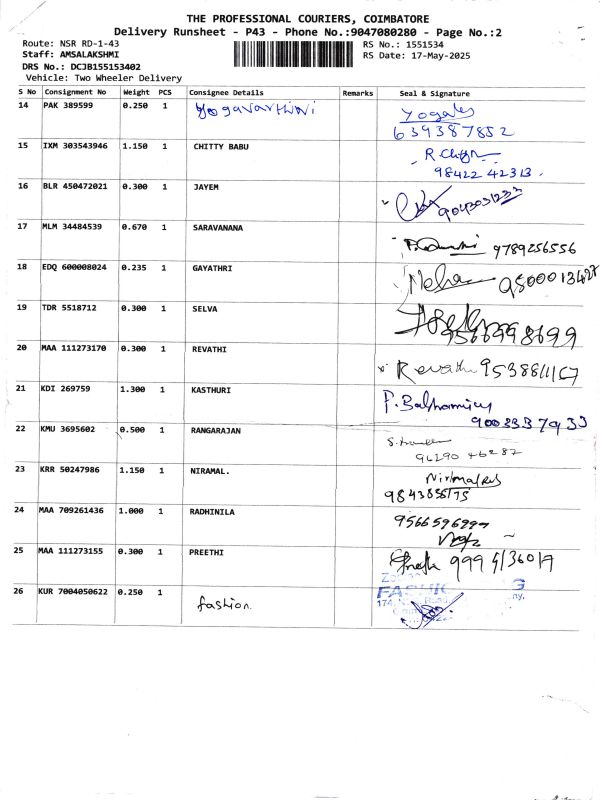 THE PROFESSIONAL COURIERS, COIMBATORE
Delivery Runsheet - P43 - Phone No.:9047080280 - Page No.:2
Route: NSR RD-1-43
RS No.: 1551534
Staff: AMSALAKSHMI
RS Date: 17-May-2025
DRS No.: DCJB155153402
Vehicle: Two Wheeler Delivery
S No Consignment No Weight PCS Consignee Details Remarks Seal & Signature
14 PAK 389599 0.250 1 Yogavarthini Yogales
639387852
15 IXM 303543946 1.150 1 CHITTY BABU
98422 42313
16 BLR 450472021 0.300 1 JAYEM
17 MLM 34484539 0.670 1 SARAVANANA
9789256556
18 EDQ 600008024 0.235 1 GAYATHRI Mohan
19 TDR 5518712 0.300 1 SELVA
20 MAA 111273170 0.300 1 REVATHI Revathi
21 KDI 269759 1.300 1 KASTHURI
9003337933
22 KMU 3695602 0.500 1 RANGARAJAN
96290 46287
23 KRR 50247986 1.150 1 NIRAMAL.
24 MAA 709261436 1.000 1 RADHINILA
25 MAA 111273155 0.300 1 PREETHI
26 KUR 7004050622 0.250 1 fashion.